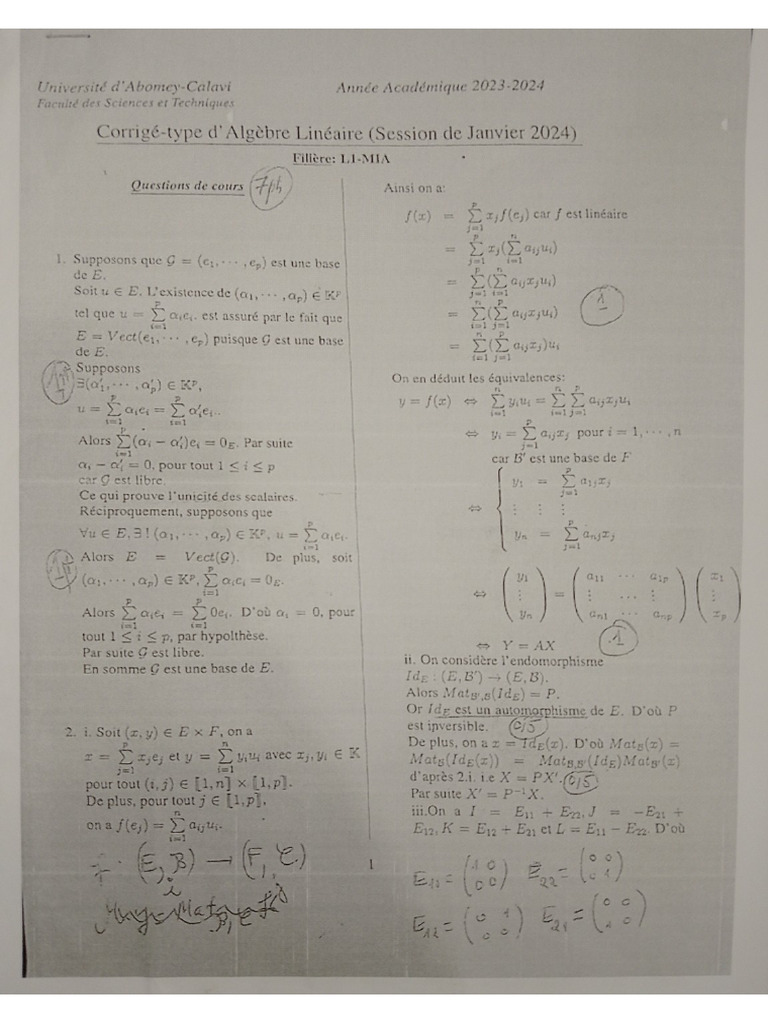 Université d'Abomey-Calavi
Faculté des Sciences et Techniques
Année Académique 2023-2024
Corrigé-type d'Algèbre Linéaire (Session de Janvier 2024)
Filière: L1-MIA
Questions de cours 7pts
1. Supposons que G = (e₁, ⋯ , eₚ) est une base
de E.
Soit u ∈ E. L'existence de (α₁, ⋯ , αₚ) ∈ 𝕂ᵖ
tel que u = ∑_{i=1}^{p} αᵢeᵢ. est assuré par le fait que
E = Vect(e₁, ⋯ , eₚ) puisque G est une base
de E.
Supposons
∃(α′₁, ⋯ , α′ₚ) ∈ 𝕂ᵖ,
u = ∑_{i=1}^{p} αᵢeᵢ = ∑_{i=1}^{p} α′ᵢeᵢ..
Alors ∑_{i=1}^{p} (αᵢ − α′ᵢ)eᵢ = 0_E. Par suite
αᵢ − α′ᵢ = 0, pour tout 1 ≤ i ≤ p
car G est libre.
Ce qui prouve l'unicité des scalaires.
Réciproquement, supposons que
∀u ∈ E, ∃ ! (α₁, ⋯ , αₚ) ∈ 𝕂ᵖ, u = ∑_{i=1}^{p} αᵢeᵢ.
Alors E = Vect(G). De plus, soit
(α₁, ⋯ , αₚ) ∈ 𝕂ᵖ, ∑_{i=1}^{p} αᵢeᵢ = 0_E.
Alors ∑_{i=1}^{p} αᵢeᵢ = ∑_{i=1}^{p} 0eᵢ. D'où αᵢ = 0, pour
tout 1 ≤ i ≤ p, par hypolthèse.
Par suite G est libre.
En somme G est une base de E.
2. i. Soit (x, y) ∈ E × F, on a
x = ∑_{j=1}^{p} xⱼeⱼ et y = ∑_{i=1}^{n} yᵢuᵢ avec xⱼ, yᵢ ∈ 𝕂
pour tout (i, j) ∈ ⟦1, n⟧ × ⟦1, p⟧.
De plus, pour tout j ∈ ⟦1, p⟧,
on a f(eⱼ) = ∑_{i=1}^{n} aᵢⱼuᵢ.
(E, B) → (F, C)
Ainsi on a:
f(x) = ∑_{j=1}^{p} xⱼf(eⱼ) car f est linéaire
= ∑_{j=1}^{p} xⱼ(∑_{i=1}^{n} aᵢⱼuᵢ)
= ∑_{j=1}^{p} (∑_{i=1}^{n} aᵢⱼxⱼuᵢ)
= ∑_{i=1}^{n} (∑_{j=1}^{p} aᵢⱼxⱼuᵢ) 1
= ∑_{i=1}^{n} (∑_{j=1}^{p} aᵢⱼxⱼ)uᵢ
On en déduit les équivalences:
y = f(x) ⇔ ∑_{i=1}^{n} yᵢuᵢ = ∑_{i=1}^{n} ∑_{j=1}^{p} aᵢⱼxⱼuᵢ
⇔ yᵢ = ∑_{j=1}^{p} aᵢⱼxⱼ pour i = 1, ⋯ , n
car B′ est une base de F
⇔ { y₁ = ∑_{j=1}^{p} a₁ⱼxⱼ
⋮ ⋮ ⋮
yₙ = ∑_{j=1}^{p} aₙⱼxⱼ
⇔ (y₁ ⋮ yₙ) = (a₁₁ ⋯ a₁ₚ ⋮ ⋯ ⋮ aₙ₁ ⋯ aₙₚ) (x₁ ⋮ xₚ)
⇔ Y = AX 1
ii. On considère l'endomorphisme
Id_E : (E, B′) → (E, B).
Alors Mat_{B′,B}(Id_E) = P.
Or Id_E est un automorphisme de E. D'où P
est inversible. 0,5
De plus, on a x = Id_E(x). D'où Mat_B(x) =
Mat_B(Id_E(x)) = Mat_{B,B′}(Id_E)Mat_{B′}(x)
d'après 2.i. i.e X = PX′. 0,5
Par suite X′ = P⁻¹X.
iii.On a I = E₁₁ + E₂₂, J = −E₂₁ +
E₁₂, K = E₁₂ + E₂₁ et L = E₁₁ − E₂₂. D'où
1
E₁₁ = (1 0 0 0) E₂₂ = (0 0 0 1)
E₁₂ = (0 1 0 0) E₂₁ = (0 0 1 0)